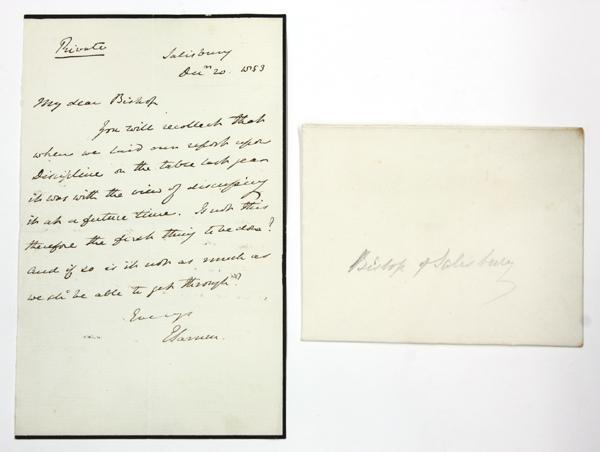 Private
Salisbury
Decr 20. 1853
My dear Bishop
You will recollect that
when we laid our report upon
Discipline on the table last year
it was with the view of discussing
it at a future time. Is not this
therefore the first thing to be done?
And if so is it not as much as
we shd be able to get through?
Ever yrs
Bishop of Salisbury